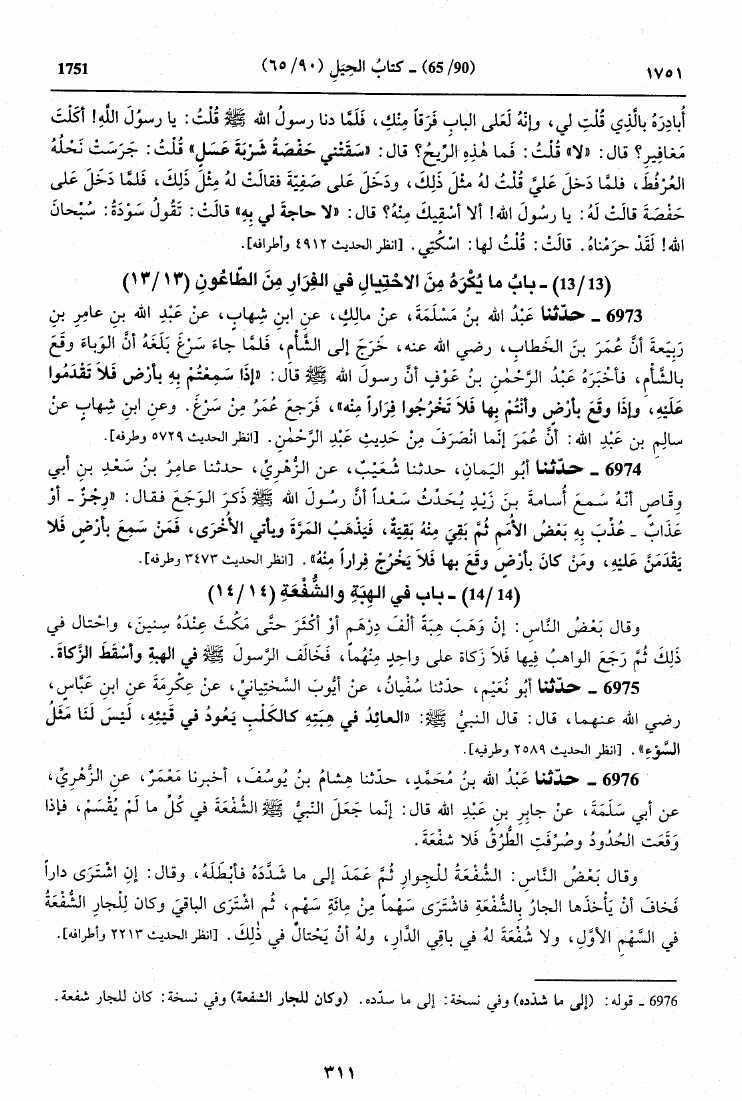 ١٧٥١ (65/90) ـ كتابُ الحِيَلِ (٩٠/٦٥) 1751
أُبادِرَهُ بالَّذِي قُلْتِ لي، وإنَّهُ لَعَلى البابِ فَرَقاً مِنْكِ، فَلَمَّا دنا رسولُ الله ﷺ قُلْتُ: يا رسولَ اللَّهِ! أكَلْتَ
مَغافِيرَ؟ قال: «لا» قُلْتُ: فَما هٰذِهِ الرِّيحُ؟ قال: «سَقَتْني حَفْصَةُ شَرْبَةَ عَسَلٍ» قُلْتُ: جَرَسَتْ نَحْلُهُ
العُرْفُطَ، فلمَّا دَخلَ عليَّ قُلْتُ لهُ مثْلَ ذَلِكَ، ودَخَلَ على صَفِيَّةَ فقالتْ لهُ مِثْلَ ذَلِكَ، فلمَّا دَخَلَ على
حَفْصَةَ قالَتْ لَهُ: يا رسُولَ الله! ألا أسْقِيكَ مِنْهُ؟ قال: «لا حاجةَ لي بِهِ» قالتْ: تَقُولُ سَوْدَةُ: سُبْحانَ
الله! لَقَدْ حرَمْناهُ. قالَتْ: قُلْتُ لها: اسْكُتِي. [انظر الحديث ٤٩١٢ وأطرافه].
(13/13) ـ بابُ ما يُكْرَهُ مِنَ الاحْتِيالِ في الفِرَارِ مِنَ الطَّاعُونِ (١٣/١٣)
6973 ـ حدّثنا عَبْدُ الله بنُ مَسْلَمَةَ، عنْ مالِكٍ، عنِ ابنِ شِهابٍ، عنْ عَبْدِ الله بنِ عامِرِ بنِ
رَبِيعَةَ أنَّ عُمَرَ بنَ الخطابِ، رضي الله عنه، خَرَجَ إلى الشَّأْمِ، فَلمَّا جاءَ سَرْغَ بَلَغَهُ أنَّ الوَباءَ وقَعَ
بالشَّأْمِ، فأخْبَرَهُ عَبْدُ الرَّحْمٰنِ بنُ عَوْفٍ أنَّ رسولَ الله ﷺ قال: «إذَا سَمِعْتُمْ بِهِ بأرْضٍ فَلاَ تَقْدَمُوا
عَلَيْهِ، وإذَا وقَعَ بأرْضٍ وأنْتُمْ بِها فَلاَ تَخْرُجُوا فِرَاراً مِنْه»، فَرَجعَ عُمَرُ مِنْ سَرْغَ. وعنِ ابنِ شِهابٍ عنْ
سالِمِ بنِ عَبْدِ الله: أنَّ عُمَرَ إنَّما انْصَرَفَ مِنْ حَدِيثِ عَبْدِ الرَّحْمٰنِ. [انظر الحديث ٥٧٢٩ وطرفه].
6974 ـ حدّثنا أبُو اليَمانِ، حدثنا شُعَيْبٌ، عنِ الزُّهْرِيِّ، حدثنا عامِرُ بنُ سَعْدِ بنِ أبي
وقَّاصٍ أنّهُ سَمعَ أُسامةَ بنَ زَيْدٍ يُحَدِّثُ سَعْداً أنَّ رسُولَ الله ﷺ ذَكرَ الوَجَعَ فقال: «رِجْزٌ ـ أوْ
عَذَابٌ ـ عُذِّبَ بِهِ بَعْضُ الأُمَمِ ثُمَّ بَقِيَ مِنْهُ بَقِيَّةٌ، فَيَذْهَبُ المَرَّةَ ويأتي الأُخْرَى، فَمَنْ سَمِعَ بأرْضٍ فَلا
يَقْدَمَنَّ عَلَيْهِ، ومَنْ كانَ بأرْضٍ وقَعَ بها فَلاَ يَخْرُجْ فِراراً مِنْهُ». [انظر الحديث ٣٤٧٣ وطرفه].
(14/14) ـ باب في الهِبَةِ والشُّفْعَةِ (١٤/١٤)
وقال بَعْضُ النَّاسِ: إنْ وَهَبَ هِبَةً ألْفَ دِرْهَمٍ أوْ أكْثَرَ حتَّى مَكُثَ عِنْدَهُ سِنِينَ، واحْتال في
ذَلِكَ ثُمَّ رَجَعَ الواهِبُ فِيها فَلاَ زَكاةَ على واحِدٍ مِنْهُما، فَخَالَفَ الرَّسولَ ﷺ في الهِبةِ وأسْقَطَ الزَّكاةَ.
6975 ـ حدّثنا أبُو نُعَيْمٍ، حدّثنا سُفْيانُ، عنْ أيُّوبَ السَّخْتِيانيِّ، عنْ عِكْرِمَةَ عنِ ابنِ عَبَّاسٍ،
رضي الله عنهما، قال: قال النبيُّ ﷺ: «العائِدُ في هِبَتِهِ كالكَلْبِ يَعُودُ في قَيْئِهِ، لَيْسَ لَنَا مَثَلُ
السَّوْءِ». [انظر الحديث ٢٥٨٩ وطرفيه].
6976 ـ حدّثنا عَبْدُ الله بنُ مُحَمَّدٍ، حدّثنا هِشامُ بنُ يُوسُفَ، أخبرنا مَعْمَرٌ، عنِ الزُّهْرِيِّ،
عن أبي سَلَمَةَ، عنْ جابِرِ بنِ عَبْدِ الله قال: إنَّما جَعَلَ النّبيُّ ﷺ الشُّفْعَةَ في كُلِّ ما لَمْ يُقْسَمْ، فإذا
وَقَعَت الحُدُودُ وصُرِّفَتِ الطُّرُقُ فَلا شفْعَةَ.
وقال بَعْضُ النَّاسِ: الشُّفْعَةُ لِلْجِوارِ ثُمَّ عَمَدَ إلى ما شَدَّدَهُ فأبْطَلَهُ، وقال: إنِ اشْتَرَى داراً
فَخافَ أنْ يَأْخُذَها الجارُ بالشُّفْعَةِ فاشْتَرَى سَهْماً مِنْ مائَةِ سَهْمٍ، ثُم اشْتَرى الباقِيَ وكان لِلْجارِ الشُّفْعَةُ
في السَّهْمِ الأوَّلِ، ولا شُفْعَةَ لهُ في باقِي الدَّارِ، ولهُ أنْ يَحْتالَ في ذٰلِكَ. [انظر الحديث ٢٢١٣ وأطرافه].
6976 ـ قوله: (إلى ما شدّده) وفي نسخة: إلى ما سدّده. (وكان للجار الشفعة) وفي نسخة: كان للجار شفعة.
٣١١